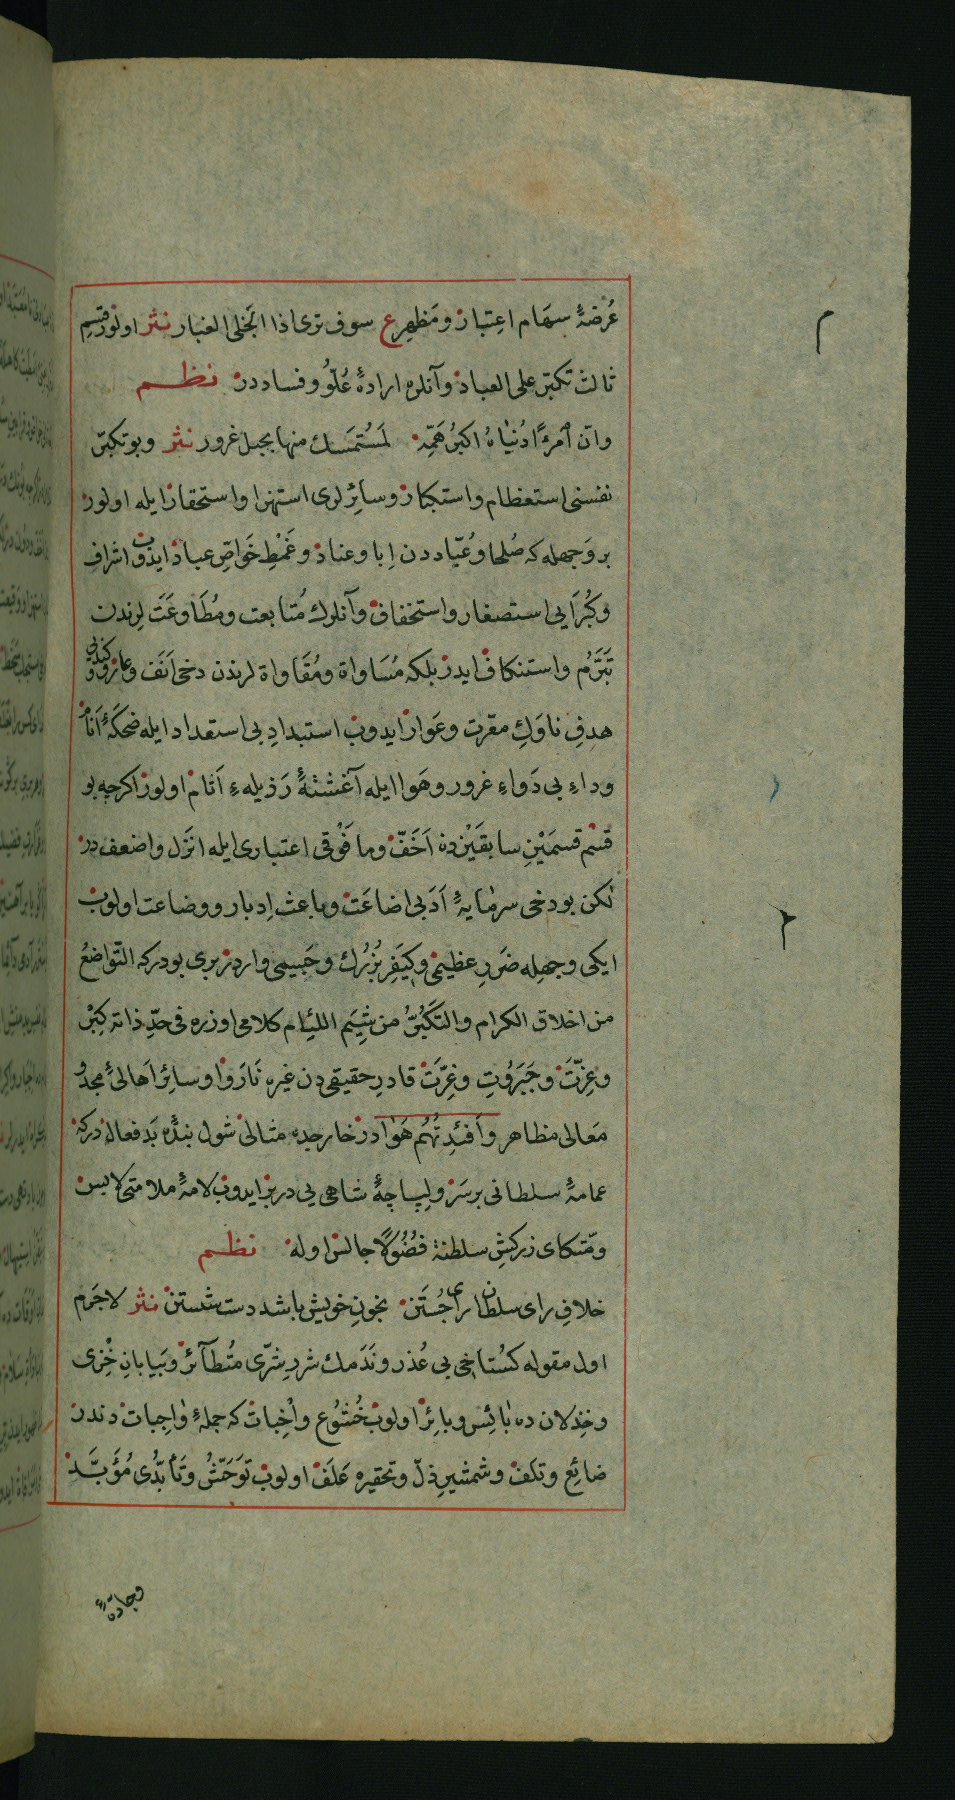 عُرْضَهٔ سِهَام اعِتبار ومَظهِرِ ع سوف ترى اذا انجلى الغبار نثر اولور قسم
ثالث تكبّر على العباد وآنلره ارادهٔ عُلُوّ وفساددر نظم
وانّ امرءًا دُنيَاهُ اكبرُ هَمِّه لمَسُتمسك منها بحبل غرور نثر وبو تكبّر
نفسنى استعظام واستكبار وسائرلرى استهزا واستحقار ايله اولور
بر وَجهله كه صُلحا وعُبّاد دن اِبا وعناد وغَمْطِ خَواصِّ عباد ايدوب اشراف
وكُبُرَايى استصغار واستخفاف وآنلرك مُتابعت ومُطَاوعَت لرندن
تَبَرُّم واستنكاف ايدر بلكه مُسَاواة ومُقَاواة لرندن دخى اَنَف وعار كندويى
هدفِ ناوَكِ معّرت وعَوار ايدوب استبدادِ بى استعداد ايله ضحكَهٔ اَنام
وداءِ بى دَواءِ غرور وهَوا ايله آغشتهٔ رَذيلهء اَثام اولور اكرچه بو
قسْم قسمَيْنِ سابقَيْن دن اَخَفّ وما فَوْقى اعتبارى ايله انزَل واضعف در
لكن بو دخى سرمايهٔ اَدَبى اضاعَت وباعث اِدبار ووضاعت اولوب
ايكى وجهله ضَررِ عظيمى وكيَفرِ بُزُرك وجَسيمى واردر برى بودركه التّواضعُ
من اخلاق الكرام والتكَبُّرُ من شِيَم اللئام كلامى اوزره فى حدِّ ذاته كِبْر
وعِزّتَ وجَبَروُتِ وعِزّتَ قادرِ حقيقى دن غيره نَارَوا وسائر اَهالئ مجدُ
مَعالى مظاهر وأَفئدِتُهُم هَوَاء در خارجده مثالى شول بندهٔ بَد فعالدركه
عمامهٔ سلطانى برسَر ولپاچهٔ شاهى يى دربر ايدوب لامهٔ ملامتى لابس
ومّتكاى زركشِ سلطنة فضُوُلًا جالس اوله نظم
خلافِ راى سلطان راى جُستَن بخونِ خويش باشد دست شستن نثر لاجَرم
اول مقوله كسُتاخى بى عُذر ونَدَمك شررِ شرّى مُتطآئر وبَيابانِ خِزى
وخِذلان ده بَائِس وبائِر اولوب خُشوُع واْخِبات كه جملهٔ واجبات دندر
ضائِع وتلف وشمشيرِ ذلّ وتحقيره عَلَف اولوب تَوَحّشُ وتَأَبُّدى مُؤَبَّد
وجادّهٔ